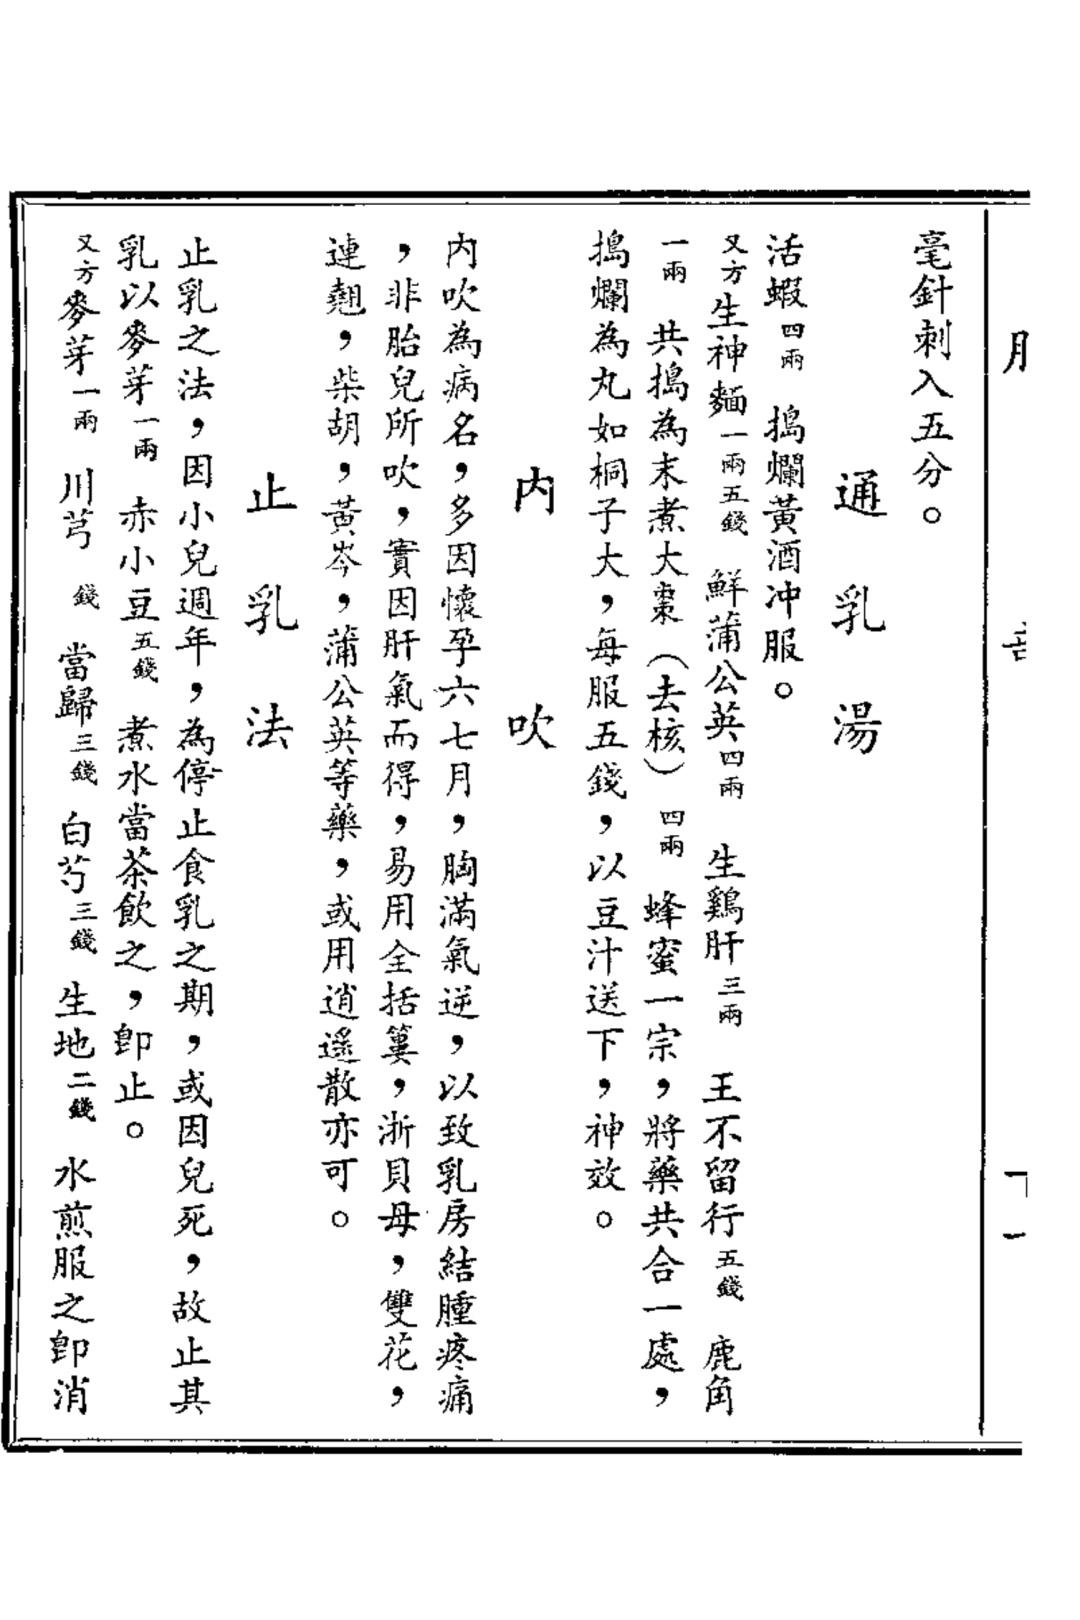 毫針刺入五分。
通乳湯
活蝦四兩　搗爛黃酒冲服。
又方生神麯一兩五錢　鮮蒲公英四兩　生鷄肝三兩　王不留行五錢　鹿角
一兩　共搗為末煮大棗（去核）四兩　蜂蜜一宗，將藥共合一處，
搗爛為丸如桐子大，每服五錢，以豆汁送下，神效。
內吹
內吹為病名，多因懷孕六七月，胸滿氣逆，以致乳房結腫疼痛
，非胎兒所吹，實因肝氣而得，易用全括蔞，浙貝母，雙花，
連翹，柴胡，黃岑，蒲公英等藥，或用逍遙散亦可。
止乳法
止乳之法，因小兒週年，為停止食乳之期，或因兒死，故止其
乳以麥芽一兩　赤小豆五錢　煮水當茶飲之，卽止。
又方麥芽一兩　川芎　錢　當歸三錢　白芍三錢　生地二錢　水煎服之卽消